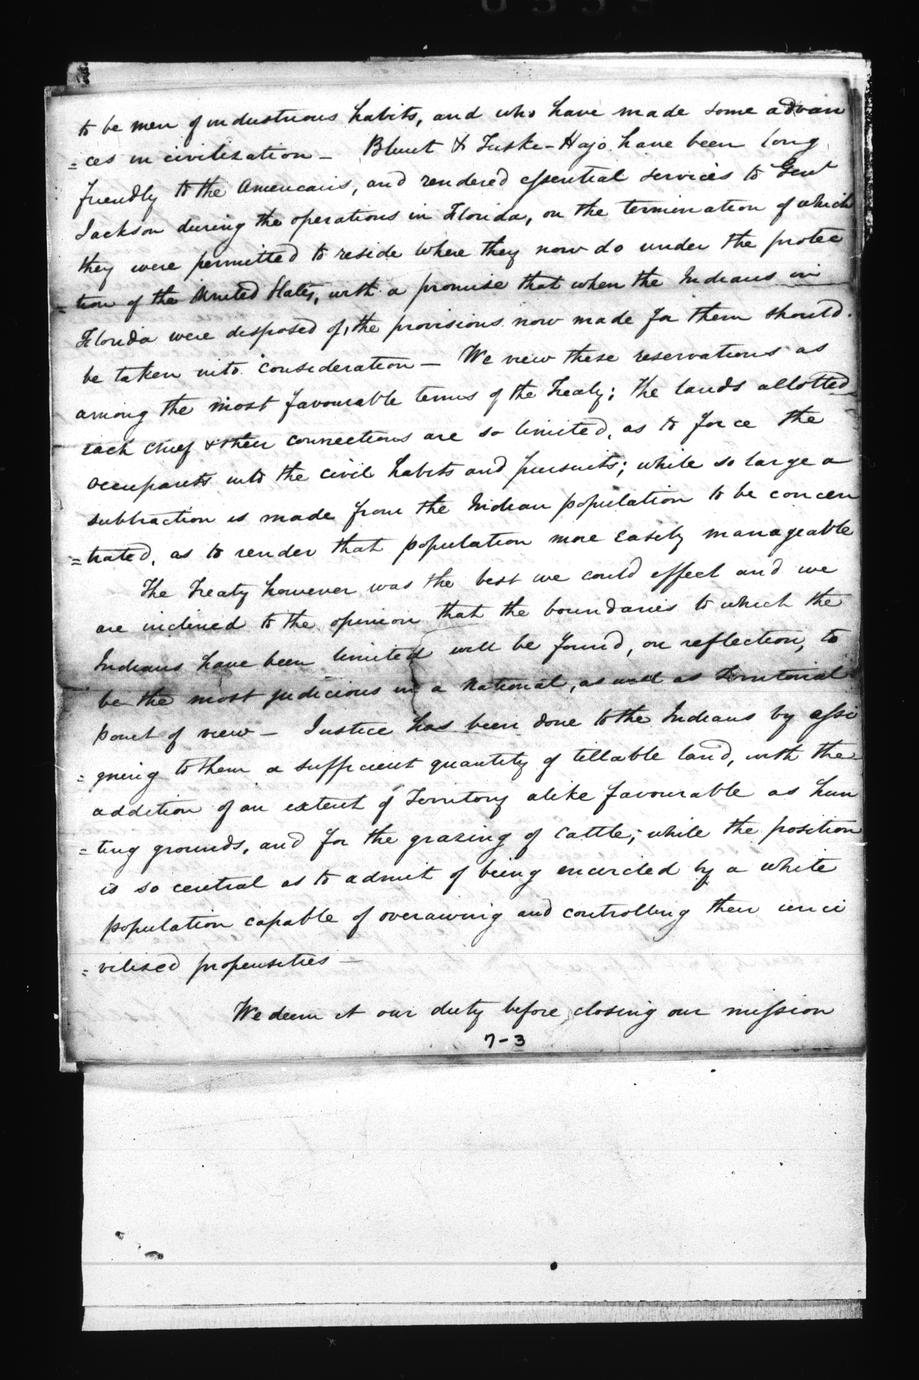 to be men of industrious habits, and who have made some advan
=ces in civilization – Blunt & Tuske-Hajo have been long
friendly to the Americans, and rendered essential services to Genl
Jackson during the operations in Florida, on the termination of which
they were permitted to reside where they now do under the protec
=tion of the United States, with a promise that when the Indians in
Florida were disposed of, the provisions now made for them should
be taken into consideration – We view these reservations as
among the most favourable terms of the Treaty; the lands allotted
each chief & their connections are so limited, as to force the
occupants into the civil habits and pursuits; while so large a
subtraction is made from the Indian population to be concen
=trated, as to render that population more easily manageable
The Treaty however was the best we could effect and we
are inclined to the opinion that the boundaries to which the
Indians have been limited will be found, on reflection, to
be the most judicious in a National, as well as Territorial
point of view – Justice has been done to the Indians by assi
=gning to them a sufficient quantity of tillable land, with the
addition of an extent of Territory alike favourable as hun
=ting grounds, and for the grazing of cattle; while the position
is so central as to admit of being encircled by a white
population capable of overawing and controlling their unci
=vilised propensities –
We deem it our duty before closing our mission
7-3